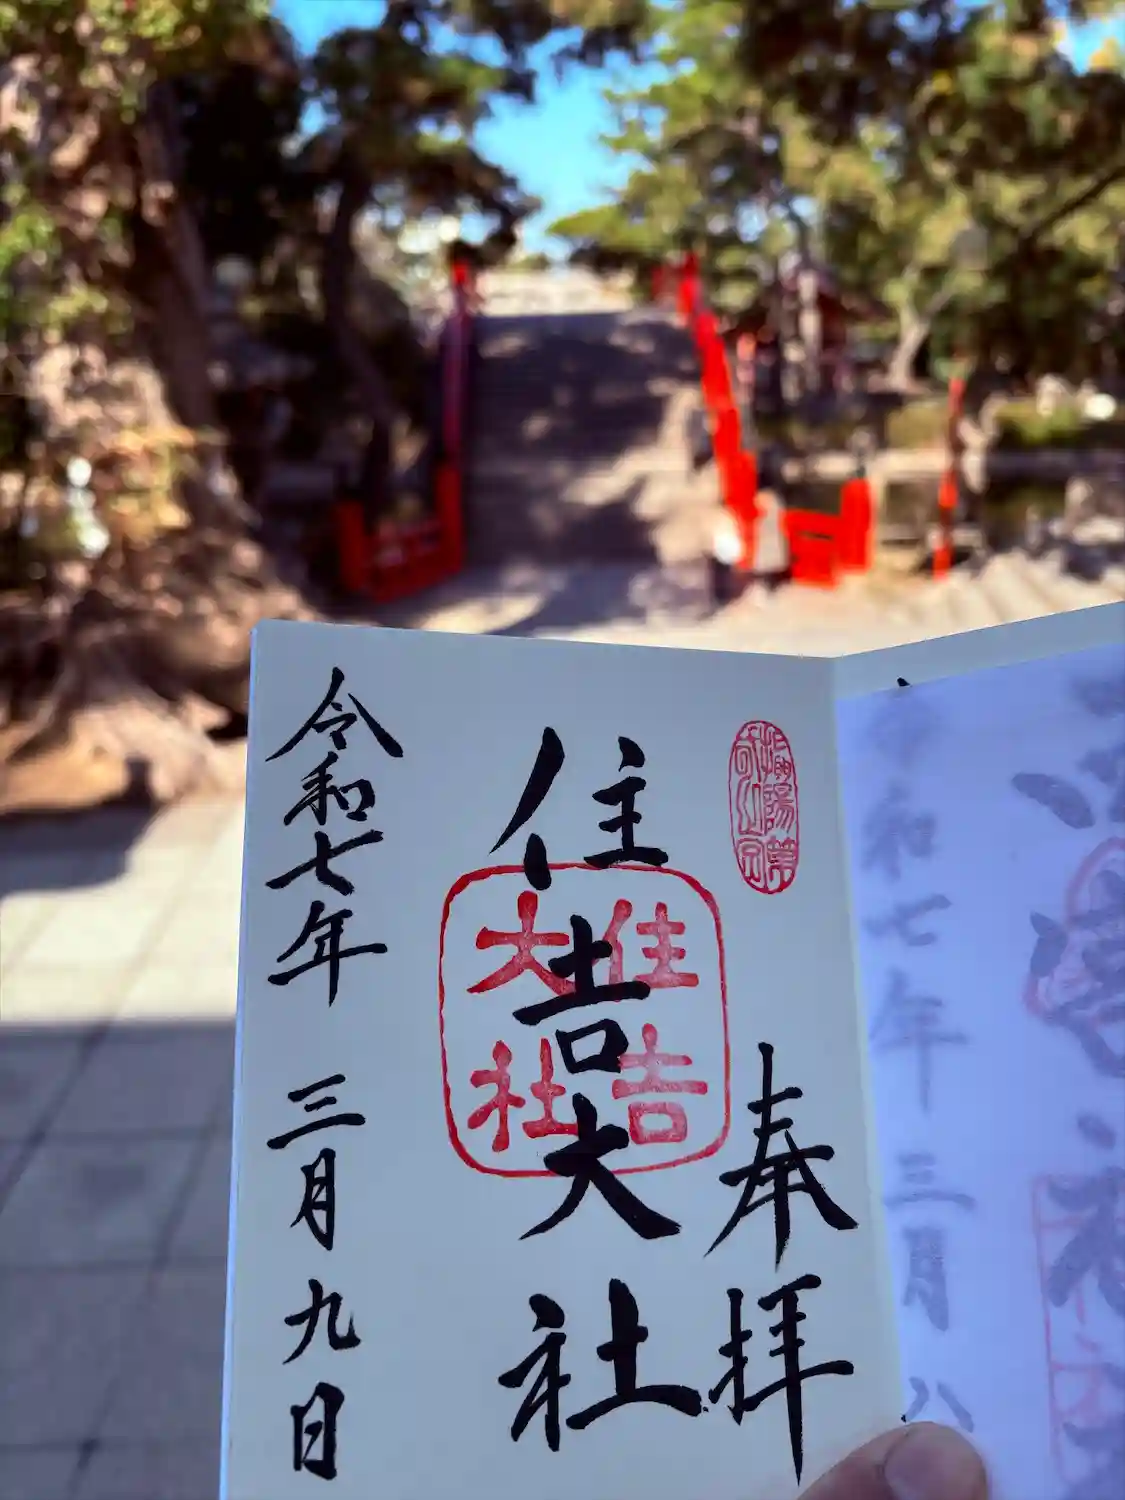 奉拝
摂陽第一之宮
住吉大社
住吉大社
令和七年 三月 九日
令和七年 三月 八